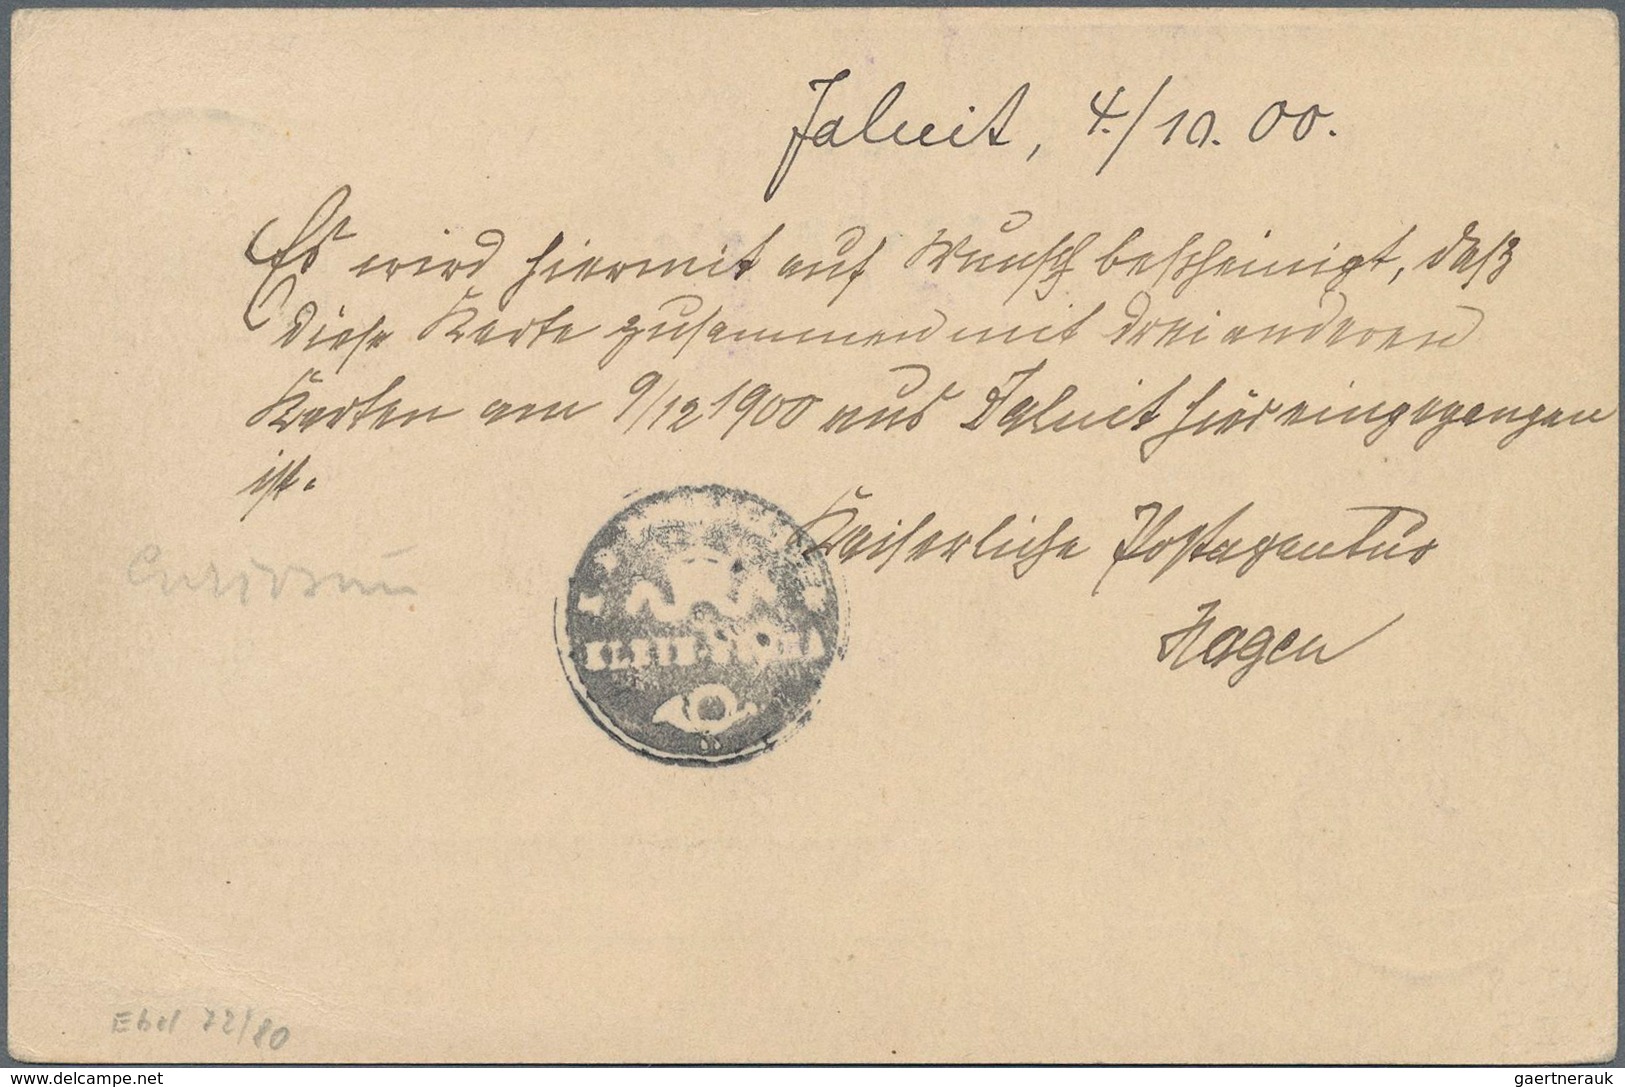 Jaluit, 4./10. 00.
Es wird hiermit auf Wunsch bescheinigt, daß
diese Karte zusammen mit drei anderen
Karten am 9/12 1900 aus Jaluit hier eingegangen
ist.
Kaiserliche Postagentur
Hagen
KLEIN
Curiosum
Ebel 72/80
delcampe.net
gaertnerauk